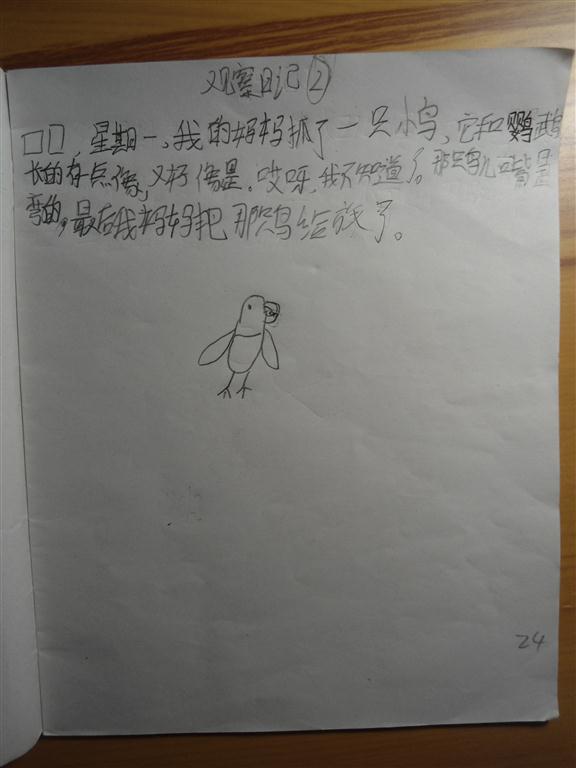 观察日记②
囗囗,星期一,我的妈妈抓了一只小鸟,它和鹦鹉
长的有点像,又好像是,哎呀,我不知道了。那只鸟儿嘴是
弯的,最后我妈妈把那只鸟给放了。
24